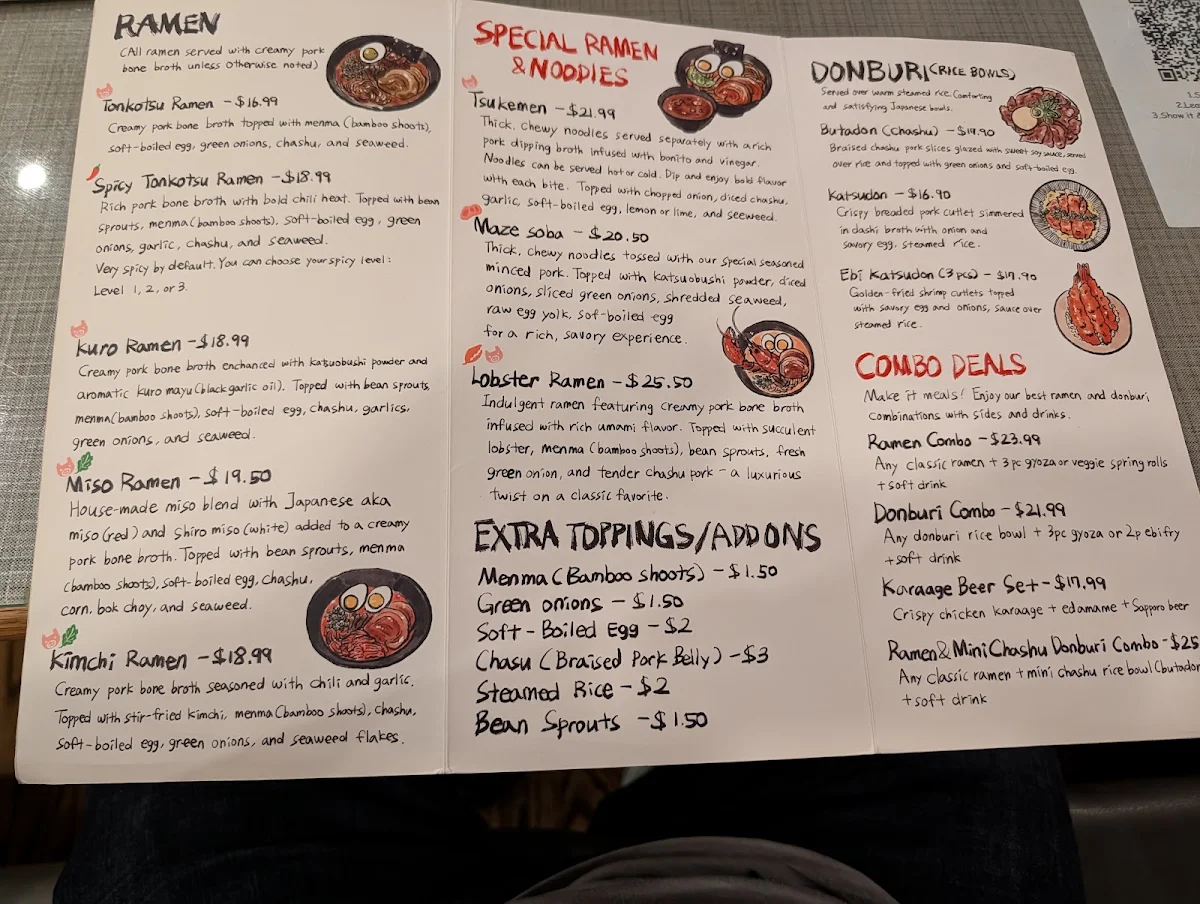 RAMEN
(All ramen served with creamy pork
bone broth unless otherwise noted)
Tonkotsu Ramen - $16.99
Creamy pork bone broth topped with menma (bamboo shoots),
soft-boiled egg, green onions, chashu, and seaweed.
Spicy Tonkotsu Ramen - $18.99
Rich pork bone broth with bold chili heat. Topped with bean
sprouts, menma (bamboo shoots), soft-boiled egg, green
onions, garlic, chashu, and seaweed.
Very spicy by default. You can choose your spicy level:
Level 1, 2, or 3.
Kuro Ramen - $18.99
Creamy pork bone broth enchanced with katsuobushi powder and
aromatic kuro mayu (black garlic oil). Topped with bean sprouts,
menma (bamboo shoots), soft-boiled egg, chashu, garlics,
green onions, and seaweed.
Miso Ramen - $19.50
House-made miso blend with Japanese aka
miso (red) and shiro miso (white) added to a creamy
pork bone broth. Topped with bean sprouts, menma
(bamboo shoots), soft-boiled egg, chashu,
corn, bok choy, and seaweed.
Kimchi Ramen - $18.99
Creamy pork bone broth seasoned with chili and garlic.
Topped with stir-fried kimchi, menma (bamboo shoots), chashu,
soft-boiled egg, green onions, and seaweed flakes.
SPECIAL RAMEN
& NOODLES
Tsukemen - $21.99
Thick, chewy noodles served separately with a rich
pork dipping broth infused with bonito and vinegar.
Noodles can be served hot or cold. Dip and enjoy bold flavor
with each bite. Topped with chopped onion, diced chashu,
garlic, soft-boiled egg, lemon or lime, and seeweed.
Maze soba - $20.50
Thick, chewy noodles tossed with our special seasoned
minced pork. Topped with katsuobushi powder, diced
onions, sliced green onions, shredded seaweed,
raw egg yolk, sof-boiled egg
for a rich, savory experience.
Lobster Ramen - $25.50
Indulgent ramen featuring creamy pork bone broth
infused with rich umami flavor. Topped with succulent
lobster, menma (bamboo shoots), bean sprouts, fresh
green onion, and tender chashu pork - a luxurious
twist on a classic favorite.
EXTRA TOPPINGS/ADD ONS
Menma (Bamboo shoots) - $1.50
Green onions - $1.50
Soft-Boiled Egg - $2
Chasu (Braised Pork Belly) - $3
Steamed Rice - $2
Bean Sprouts - $1.50
DONBURI (RICE BOWLS)
Served over warm steamed rice. Comforting
and satisfying Japanese bowls.
Butadon (chashu) - $19.90
Braised chashu pork slices glazed with sweet soy sauce, served
over rice and topped with green onions and soft-boiled egg.
Katsudon - $16.90
Crispy breaded pork cutlet simmered
in dashi broth with onion and
savory egg, steamed rice.
Ebi Katsudon (3 pcs) - $17.90
Golden-fried shrimp cutlets topped
with savory egg and onions, sauce over
steamed rice.
COMBO DEALS
Make it meals! Enjoy our best ramen and donburi
combinations with sides and drinks.
Ramen Combo - $23.99
Any classic ramen + 3pc gyoza or veggie spring rolls
+ soft drink
Donburi Combo - $21.99
Any donburi rice bowl + 3pc gyoza or 2p ebifry
+ soft drink
Karaage Beer Set - $17.99
Crispy chicken karaage + edamame + Sapporo beer
Ramen & Mini Chashu Donburi Combo - $25
Any classic ramen + mini chashu rice bowl (butadon
+ soft drink